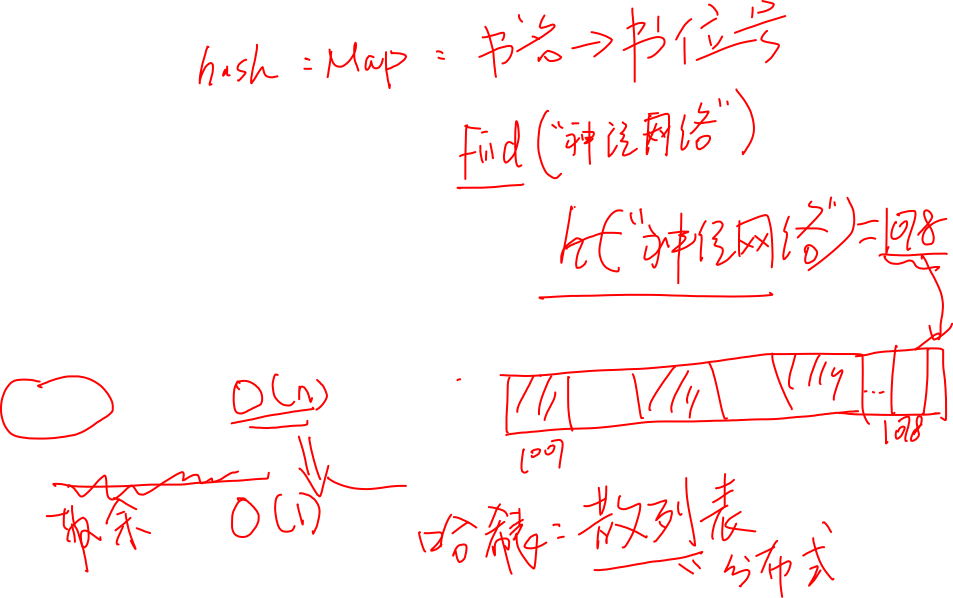 hash = Map = 书名→书位号
Find("神经网络")
h("神经网络")=1078
O(n)
1007
1078
取余
O(1)
哈希=散列表
分布式